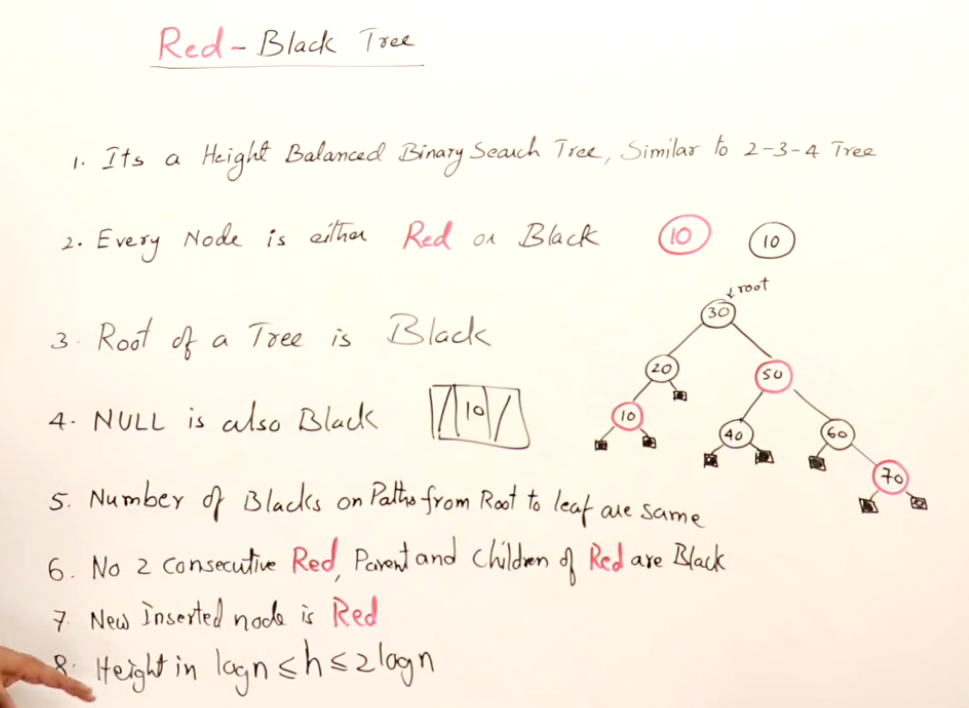 Red-Black Tree
1. Its a Height Balanced Binary Search Tree, Similar to 2-3-4 Tree
2. Every Node is either Red or Black 10 10
root
30
3. Root of a Tree is Black
20 50
4. NULL is also Black 10
10 40 60
70
5. Number of Blacks on Paths from Root to leaf are same
6. No 2 consecutive Red, Parent and children of Red are Black
7. New Inserted node is Red
8. Height in logn ≤ h ≤ 2logn